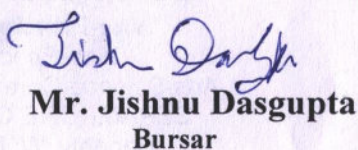 Jishnu Dasgupta
Mr. Jishnu Dasgupta
Bursar